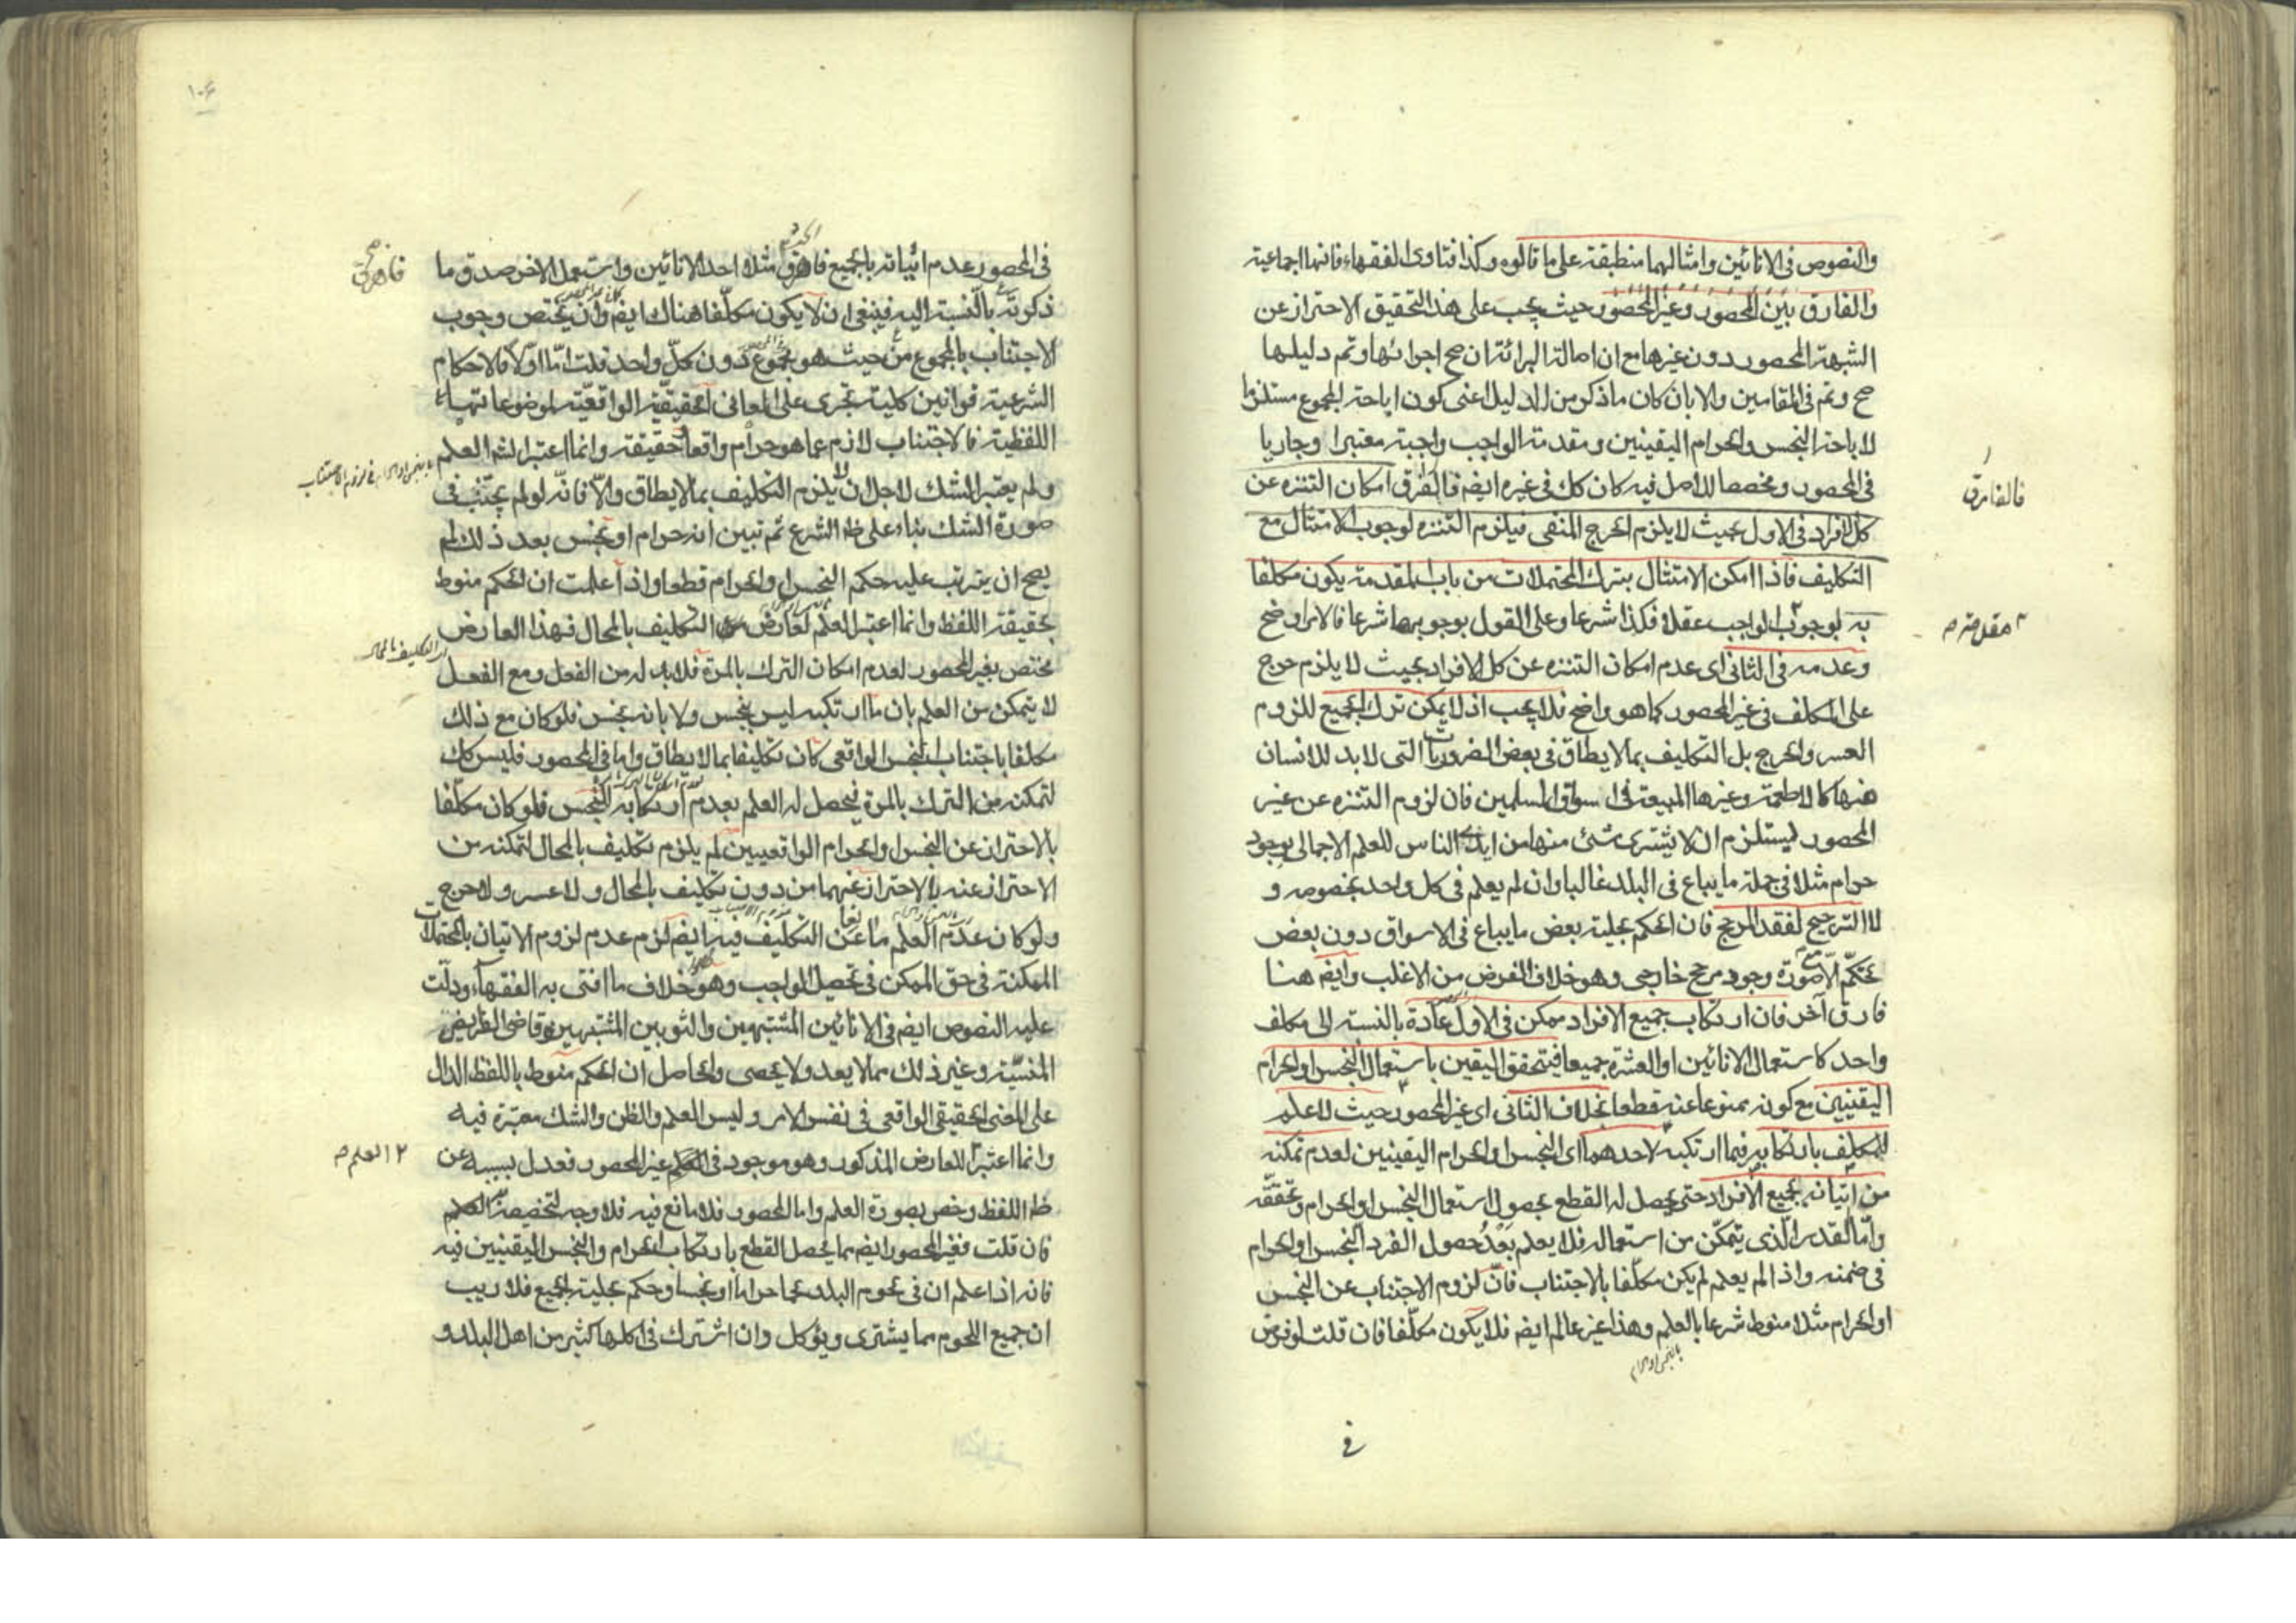 والنصوص فی الانائین وامثالهما منطبقة علی ما قالوه وکذا فتاوی الفقهاء فانها اجماعیة
والفارق بین المحصور وغیر المحصور حیث یجب علی هذا التحقیق الاحتراز عن
الشبهة المحصور دون غیرها مع ان اصالة البرائة ان صح اجرائها وتم دلیلها
صح وتم فی المقامین والا بان کان ما ذکر من الدلیل اعنی کون اباحة المجموع مستلزما
لاباحة النجس والحرام الیقینین ومقدمة الواجب واجبة معتبرا وجاریا
فی المحصور ومخصصا للاصل فیه کان کک فی غیره ایضم فالفرق امکان التنزه عن
فالفارق
کل الافراد فی الاول بحیث لا یلزم الحرج المنفی فیلزم التنزه لوجوب الامتثال مع
التکلیف فاذا امکن الامتثال بترک المحتملات من باب المقدمة یکون مکلفا
به لوجوب الواجب عقلا فکذا شرعا وعلی القول بوجوبها شرعا فالامر اوضح
مقدمة م
وعدمه فی الثانی ای عدم امکان التنزه عن کل الافراد بحیث لا یلزم حرج
علی المکلف فی غیر المحصور کما هو واضح فلا یجب اذ لا یمکن ترک الجمیع للزوم
العسر والحرج بل التکلیف بما لا یطاق فی بعض الضروریات التی لا بد للانسان
منها کالاطعمة وغیرها المبیعة فی اسواق المسلمین فان لزوم التنزه عن غیر
المحصور لیستلزم ان لا یشتری شئ منها من ایدی الناس للعلم الاجمالی بوجود
حرام مثلا فی جملة ما یباع فی البلد غالبا وان لم یعلم فی کل واحد بخصوصه و
لا الترجیح لفقد المرجح فان الحکم بحلیة بعض ما یباع فی الاسواق دون بعض
تحکّم الا صورة وجود مرجح خارجی وهو خلاف الفرض من الاغلب وایضم هنا
فارق آخر فان ارتکاب جمیع الافراد ممکن فی الاول عادة بالنسبة الی مکلف
واحد کاستعمال الانائین او العشرة جمیعا فیتحقق الیقین باستعمال النجس او الحرام
الیقینیین مع کونه ممنوعا عنه قطعا بخلاف الثانی ای غیر المحصور حیث لا علم
للمکلف بارتکابه فیما ارتکبه لاحدهما ای النجس والحرام الیقینین لعدم تمکنه
من اتیانه بجمیع الافراد حتی یحصل له القطع بحصول استعمال النجس او الحرام وتحققه
وامّا القدر الّذی یتمکّن من استعماله فلا یعلم بعدُ حصول الفرد النجس او الحرام
فی ضمنه واذا لم یعلم لم یکن مکلّفا بالاجتناب فانّ لزوم الاجتناب عن النجس
او الحرام مثلا منوط شرعا بالعلم وهذا غیر عالم ایضم فلا یکون مکلّفا فان قلت لو فرض
بالنجس او الحرام
فی
۱۰۶
فی المحصور عدم اتیانه بالجمیع فاهرق مثلا احد الانائین واستعمل الاخر صدق ما
فاهرق
ذکرته بالنسبة الیه فینبغی ان لا یکون مکلّفا هناک ایضم وان یختص وجوب
الاجتناب بالمجموع من حیث هو مجموع دون کلّ واحد قلت امّا اوّلا فالاحکام
الشرعیة قوانین کلیة تجری علی المعانی الحقیقیّة الواقعیّة لموضوعاتها
اللفظیة فالاجتناب لازم عما هو حرام واقعا حقیقة وانما اعتبر الشم العلم
بالنجس او الحرام فی لزوم الاجتناب
ولم یعتبر الشک لاجل ان لا یلزم التکلیف بما لا یطاق والّا فانّه لو لم یجتنب فی
صورة الشک بناء علی ظ الشرع ثم تبین انه حرام او نجس بعد ذلک لم
یصح ان یترتب علیه حکم النجس او الحرام قطعا واذا علمت ان الحکم منوط
بحقیقة اللفظ وانما اعتبر العلم لعارض التکلیف بالمحال فهذا العارض
ای التکلیف بالمحال
مختص بغیر المحصور لعدم امکان الترک بالمرة فلا بد له من الفعل ومع الفعل
لا یتمکن من العلم بان ما ارتکبه لیس بنجس ولا بانه نجس فلو کان مع ذلک
مکلفا باجتناب النجس الواقعی کان تکلیفا بما لا یطاق واما فی المحصور فلیس کک
لتمکنه من الترک بالمرة فیحصل له العلم بعدم ارتکابه النجس فلو کان مکلّفا
بالاحتراز عن النجس او الحرام الواقعیین لم یلزم تکلیف بالمحال لتمکنه من
الاحتراز عنه بالاحتراز عنهما من دون تکلیف بالمحال ولا عسر ولا حرج
ولو کان عدم العلم مانعا عن التکلیف فیه ایضم لزم عدم لزوم الاتیان بالمحتملات
الممکنة فی حق الممکن فی تحصیل الواجب وهو خلاف ما افتی به الفقهاء ودلّت
علیه النصوص ایضم فی الانائین المشتبهین والثوبین المشتبهین وقاضی الفرایض
المنسیّة وغیر ذلک مما لا یعد ولا یحصی والحاصل ان الحکم منوط باللفظ الدال
علی المعنی الحقیقی الواقعی فی نفس الامر ولیس العلم والظن والشک معتبرة فیه
وانما اعتبر للعارض المذکور وهو موجود فی غیر المحصور فعدل بسببه عن
۲ العلم م
ظ اللفظ وخص بصورة العلم واما المحصور فلا مانع فیه فلا وجه لتخصیصه بالعلم
فان قلت فغیر المحصور ایضم مما یحصل القطع بارتکاب الحرام والنجس الیقینیین فیه
فانه اذا علم ان فی لحوم البلد لحما حراما او نجسا وحکم بحلیة الجمیع فلا ریب
ان جمیع اللحوم مما یشتری ویؤکل وان اشترک فی اکلها کثیر من اهل البلد و